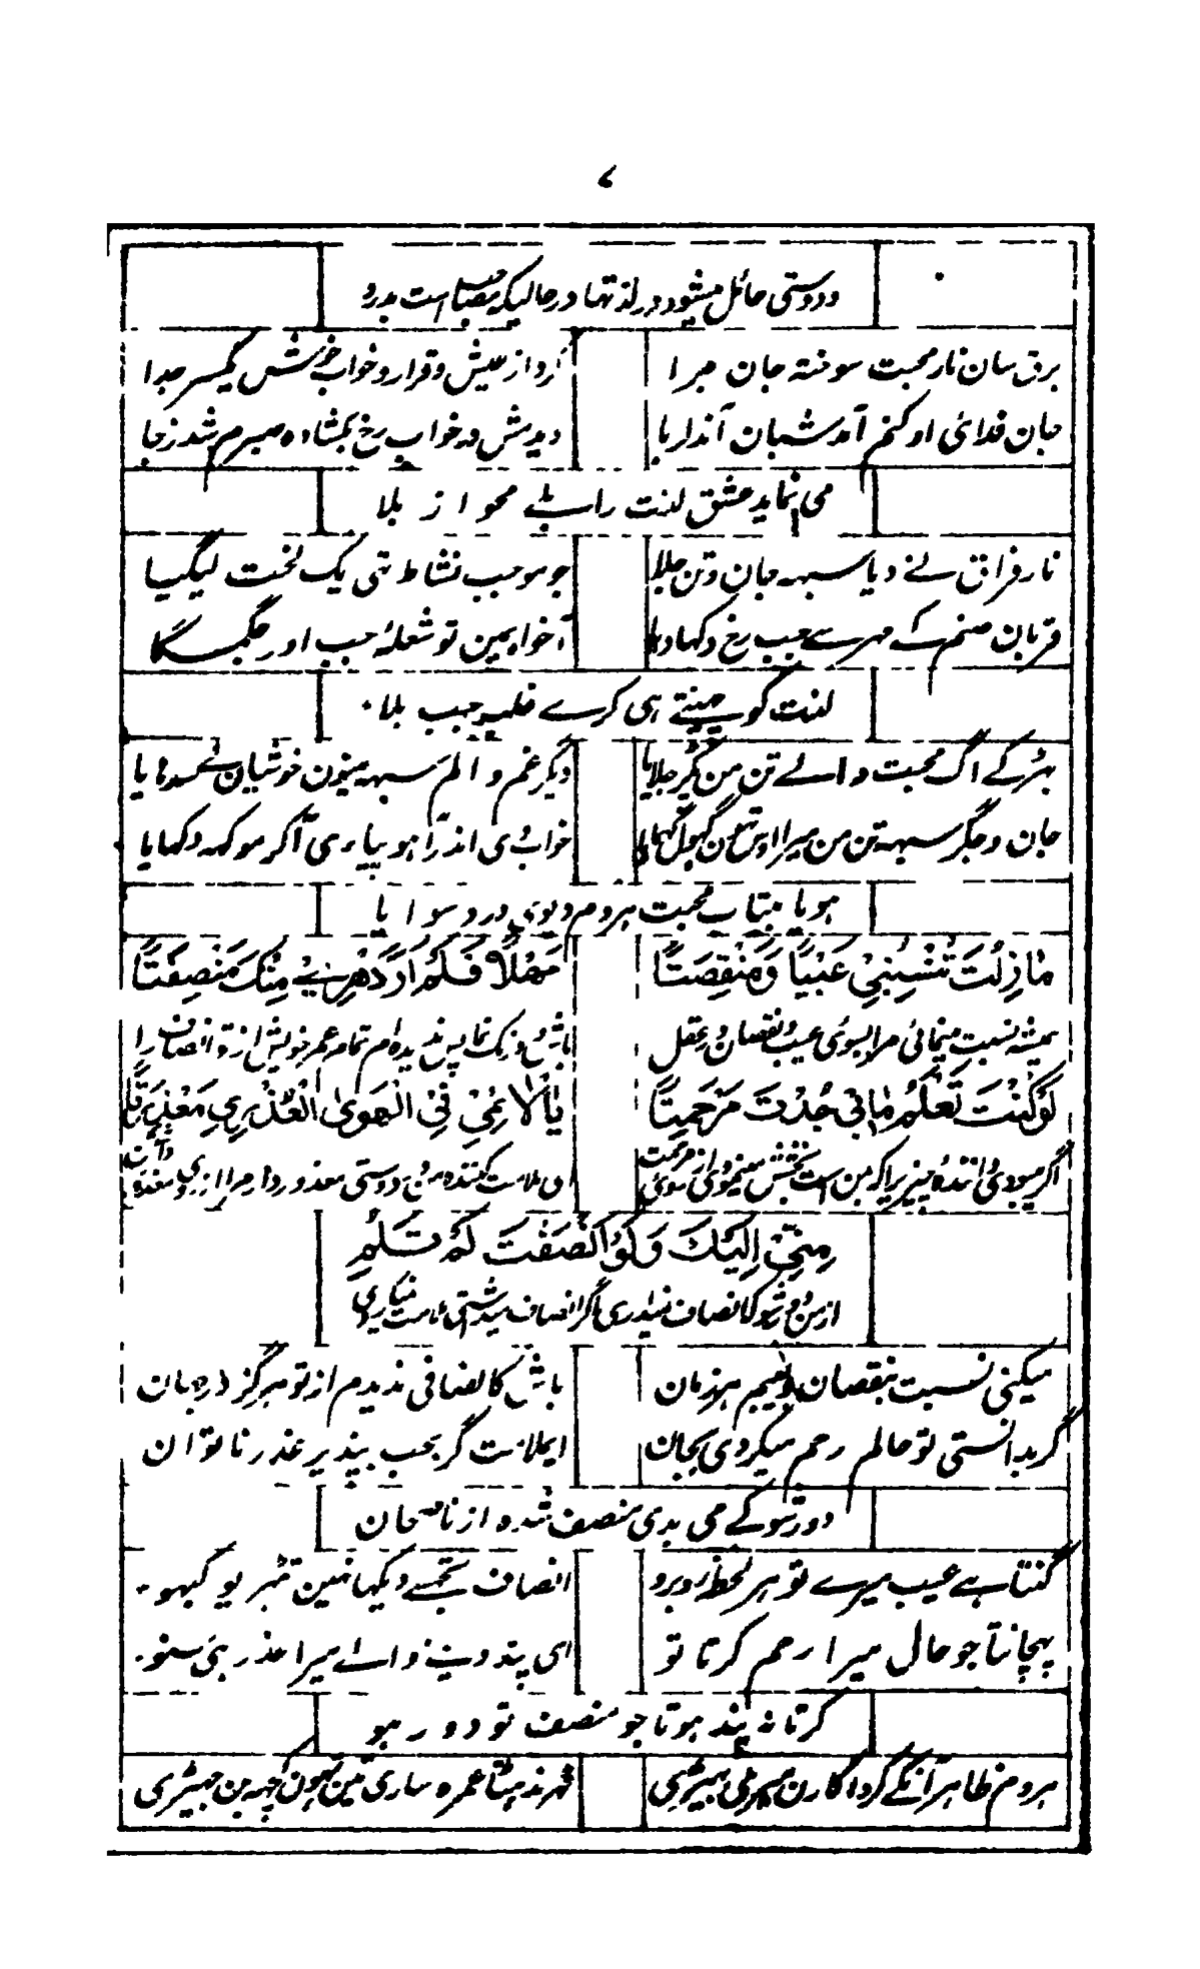 ۷
ودوستی حائل میشود در لذتها درحالیکه مصیبت است بدرو
برق سان نار محبت سوخته جان مرا
کرد از عیش و قرار و خواب خوش یکسر جدا
جان فدائ او کنم آمد شبان آندلربا
دیدمش در خواب رخ بکشاده صبرم شد زجا
می نماید عشق لذت را بے محو از بلا
نار فراق نے دیا سبہہ جان و تن جلا
جو موجب نشاط تہی یک لخت لیگیا
قربان صنم کے مہر سے جب رخ دکہا دیا
آخواب مین تو شعلۂ حب اور جگمگا
لذت کو چہینتے ہی کرے غلبہ جب بلا
بہڑکے آگ محبت والے تن من جلایا
دیگر غم و الم سبہہ مینون خوشیان
جان و جگر سبہہ تن من میرا
خواب دی اندر آہو پیاری آکر موکہہ دکہایا
ہویا بیتاب محبت ہردم دیوی درد سوایا
مَازِلْتَ تَنْسِبُنِي عَيْبًا وَمَنْقِصَتًا
مَهْلًا فَلَمْ اَرَ دَهْرِي مِنْكَ مَنْصِفَتًا
ہمیشہ نسبت مینمائی مرا بسوی عیب و نقصان عقل
باش و درنگ نما پس ندیدہ ام تمام عمر خویش از تو انصاف را
لَوْكُنْتَ تَعْلَمُ مَابِي جُدْتَ مَرْحَمَتًا
يَالَائِمِي فِي الْهَوٰى الْعُذْرِيِ مَعْذِرَةً
اگر میبودی دانندہ چیزیرا کہ بمن است بخشش مینمودی از مرحمت
ای ملامت کنندہ من در دوستی معذور دار مرا
مِنِّيْ اِلَيْكَ وَلَوْ اَنْصَفْتَ لَمْ تَلُمِ
از من دور شو کہ انصاف نداری اگر انصاف میداشتی ملامت نمیکردی
میکنی نسبت بنقصان و بعیبم ہر زمان
باش کانصافی ندیدم از تو ہرگز در جہان
گر بدانستی تو حالم رحم میکردی بجان
ای ملامت گر بحب بپذیر عذر ناتوان
دور شو کے می بدی منصف شدہ از ناصحان
گنتا ہے عیب میرے تو ہر لحظہ روبرو
انصاف تجہسے دیکہا نہین ٹہریو کبہو
پہچانتا جو حال میرا رحم کرتا تو
ای پند دینے والے میرا عذر بہی سنو
کرتا نہ پند ہوتا جو منصف تو دور ہو
ہردم ظاہر آنکے کردا
عمرہ ساری تین